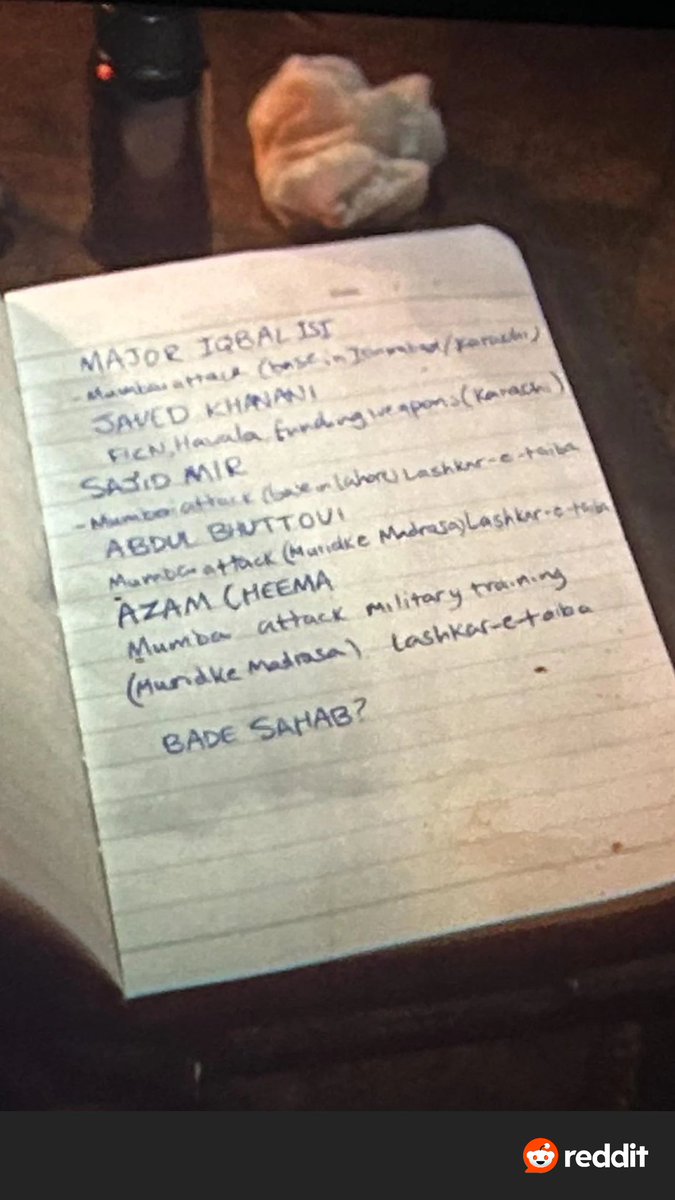 MAJOR IQBAL ISI
- Mumbai attack (base in Islamabad/Karachi)
JAVED KHANANI
FICN, Hawala funding weapons (Karachi)
SAJID MIR
- Mumbai attack (base in Lahore) Lashkar-e-taiba
ABDUL BHUTTOVI
Mumbai attack (Muridke Madrasa) Lashkar-e-taiba
AZAM CHEEMA
Mumba attack military training
(Muridke Madrasa) Lashkar-e-taiba
BADE SAHAB?
reddit